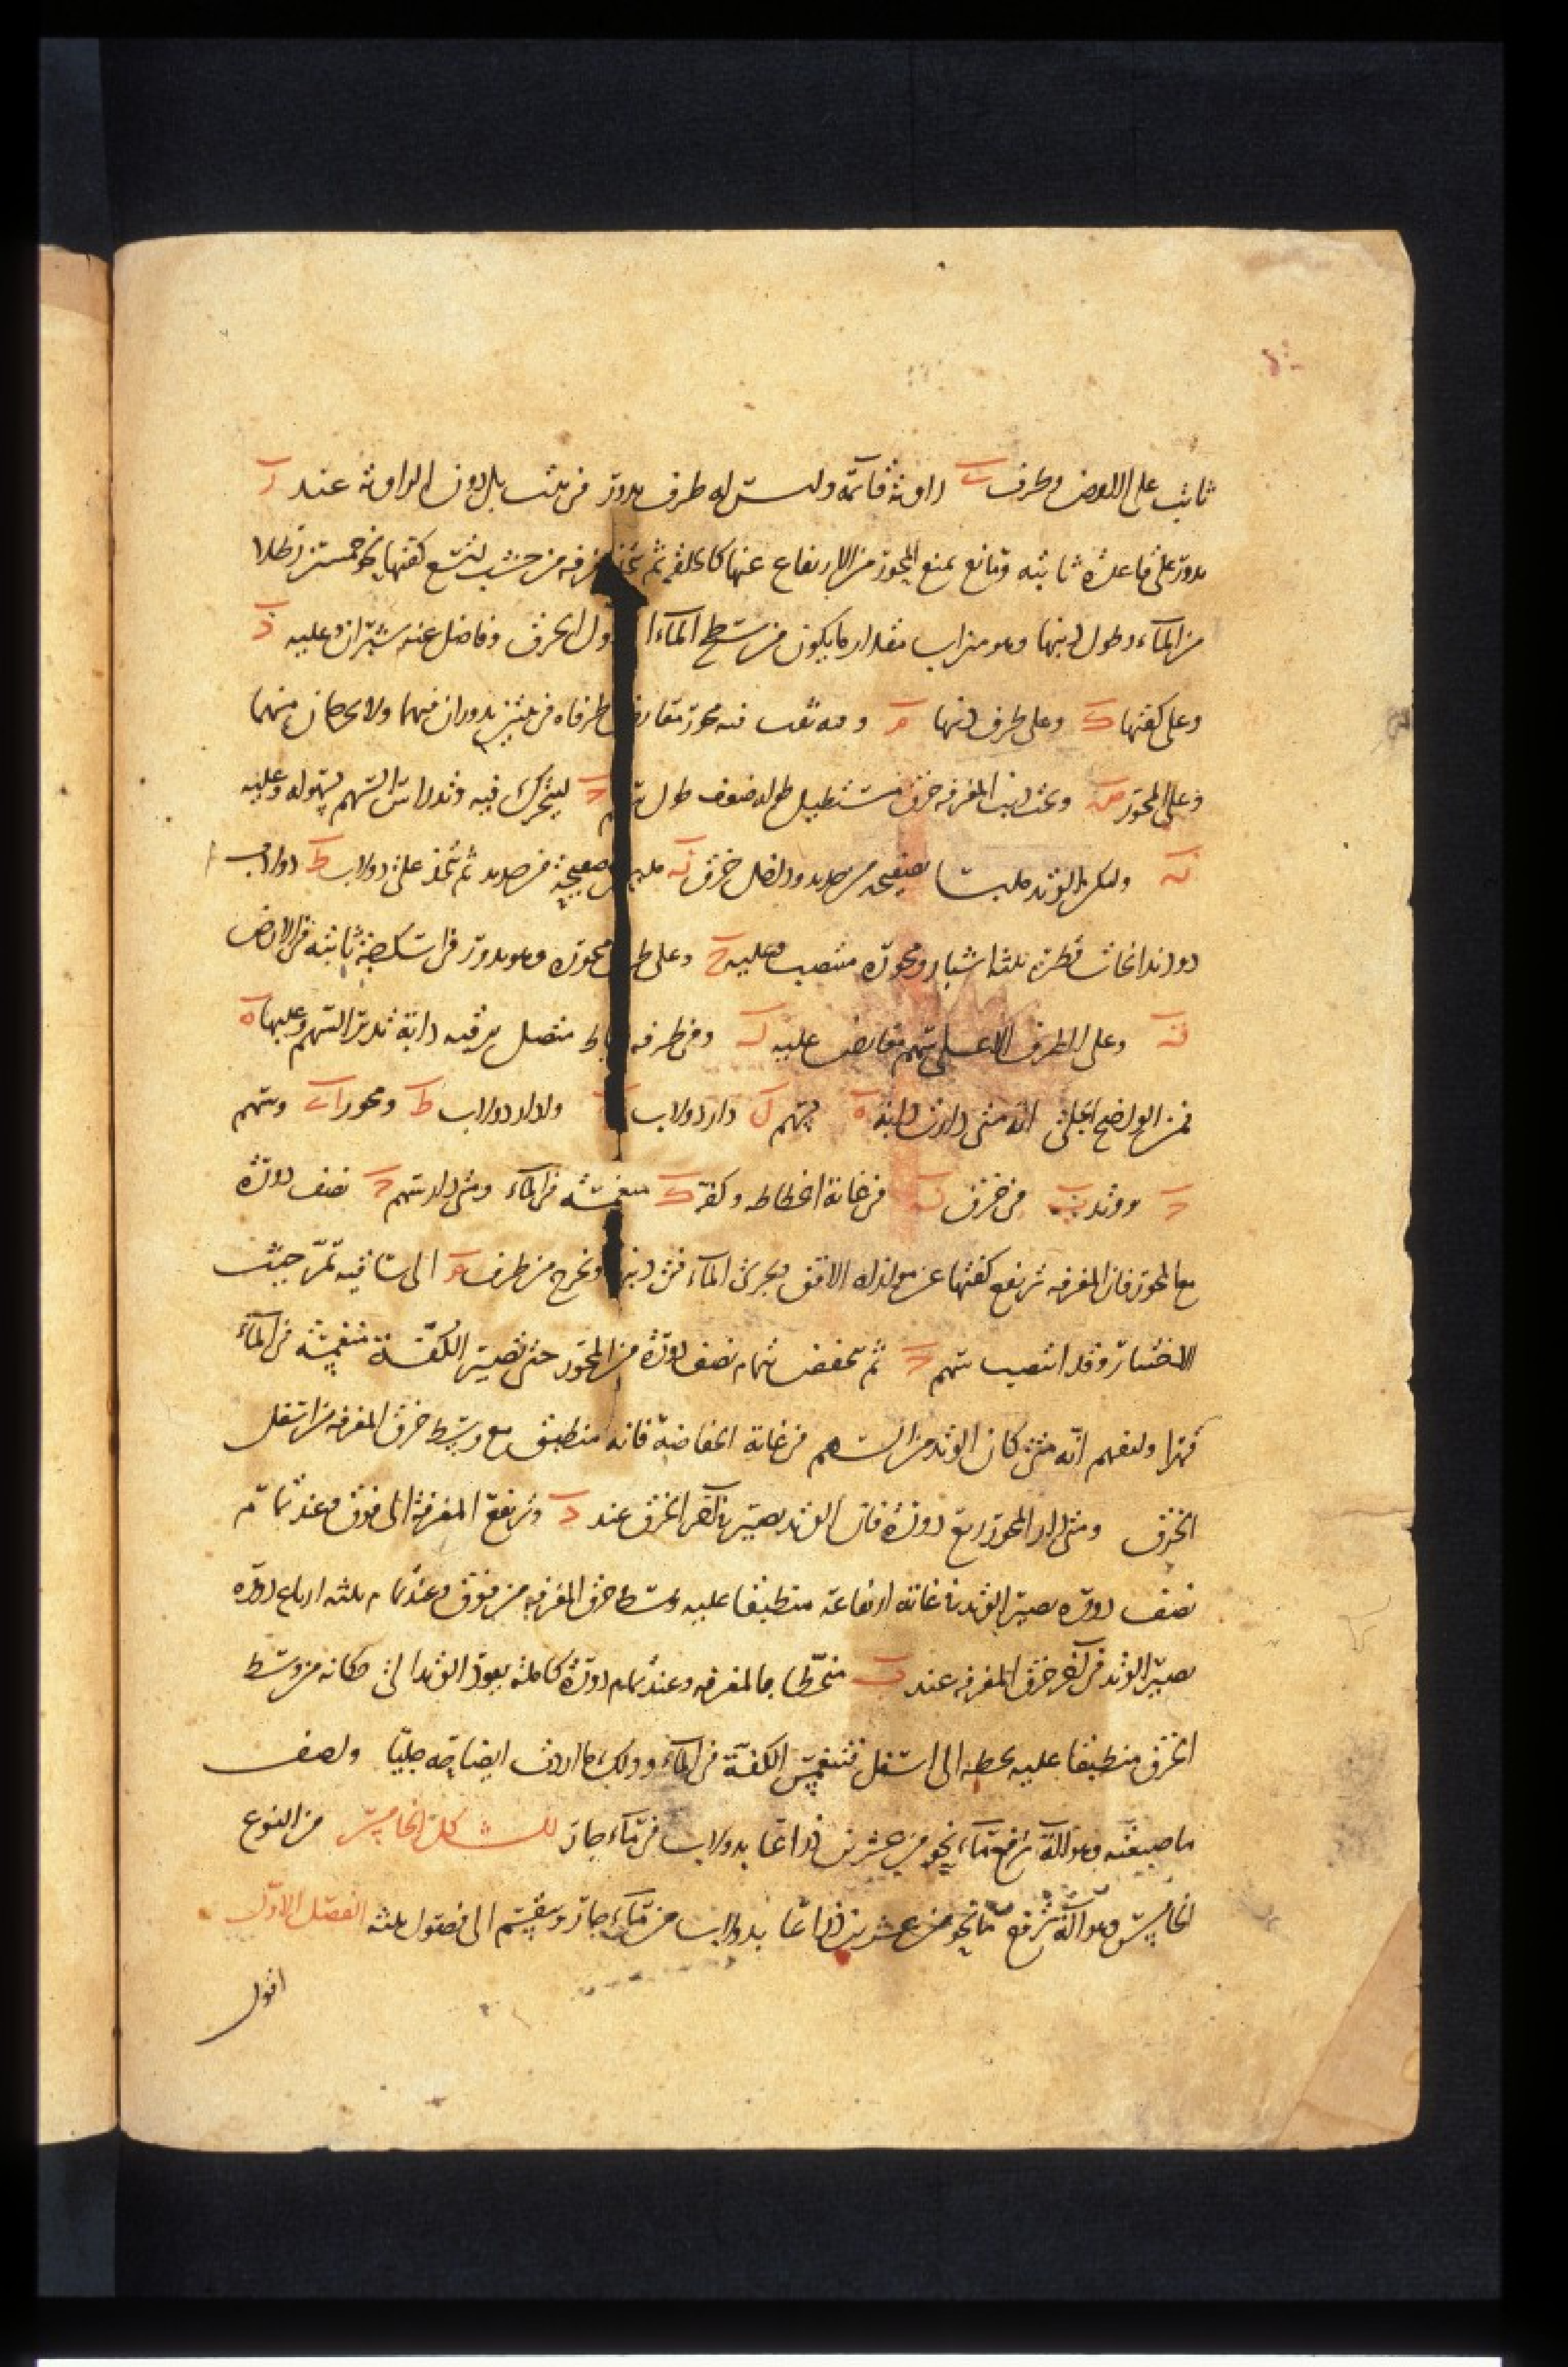 ثابت على الارض وطرف ب زاوية قائمة وليس له طرف يدور في بيت بل دون الزاوية عند ر
يدور على قاعدة ثابتة ومانع يمنع المحور من الارتفاع عنها كالحلقة ثم تتخذ مغرفه من خشب لتسع كفتها نحو خمسين رطلا
من الماء وطول ذنبها وهو ميزاب مقدار ما يكون من سطح الماء الى الحرف وفاضل عنه شبران وعليه
وعلى كفتها ك وعلى طرف ذنبها م فيه محور متعارض طرفاه في بيتين يدوران فيهما ولا يخرجان منهما
وعلى المحور ص وتحت ذنب المغرفه خرق مستطيل طوله ضعف طول سهم ليتحرك فيه وتد راس السهم بسهولة وعليه
وليكن الوتد ملبسا بصفيحه من حديد وداخل خرق صفيحة من حديد ثم تتخذ على دولاب ط دولاب
دواندانجات قطره ثلثه اشبار ومحوره منتصب وعليه وعلى طرف محوره وهو يدور في اسكرجة ثابتة في الارض
وعلى الطرف الاعلى سهم متعارض عليه ل وفي طرفه رباط متصل برقبه دابة تدير السهم وعليها ه
فمن الواضح الجلي انه متى دارت دابة ه بسهم ل دار دولاب ودار دولاب ط ومحور وسهم
ووتد في خرق في غاية انحطاطه وكفة ك منغمسه في الماء ومتى دار سهم نصف دورة
مع المحور فان المغرفه ترتفع كفتها عن موازاه الافق ويجري الماء في ذنبها ويخرج من طرف م الى ساقيه تمر حيث
الاختيار وقد انتصب سهم ثم تخفض بتمام نصف دورة من المحور حتى تصير الكفة منغمسة في الماء
فهذا وليفهم انه متى كان الوتد من السهم في غاية انخفاضه فانه منطبق مع وسط خرق المغرفه من اسفل
الخرق ومتى دار المحور ربع دورة فان الوتد يصير في آخر الخرق عند وترتفع المغرفة الى فوق وعند تمام
نصف دوره يصير الوتد في غاية ارتفاعه منطبقا عليه وسط خرق المغرفه من فوق وعند تمام ثلثه ارباع دورة
يصير الوتد في آخر خرق المغرفه عند ب منحطا بالمغرفه وعند تمام دورة كاملة يعود الوتد الى مكانه من وسط
الخرق منطبقا عليه يحطه الى اسفل فتنغمس الكفة في الماء وذلك ما اردت ايضاحه جليا ولصف
ما صنعته وهو آلة ترفع ماء نحو من عشرين ذراعا بدولاب في ماء جار الشكل الخامس من النوع
الخامس وهو آلة ترفع ماء نحو من عشرين ذراعا بدولاب من ماء جار وينقسم الى فصول ثلثه الفصل الاول
اقول